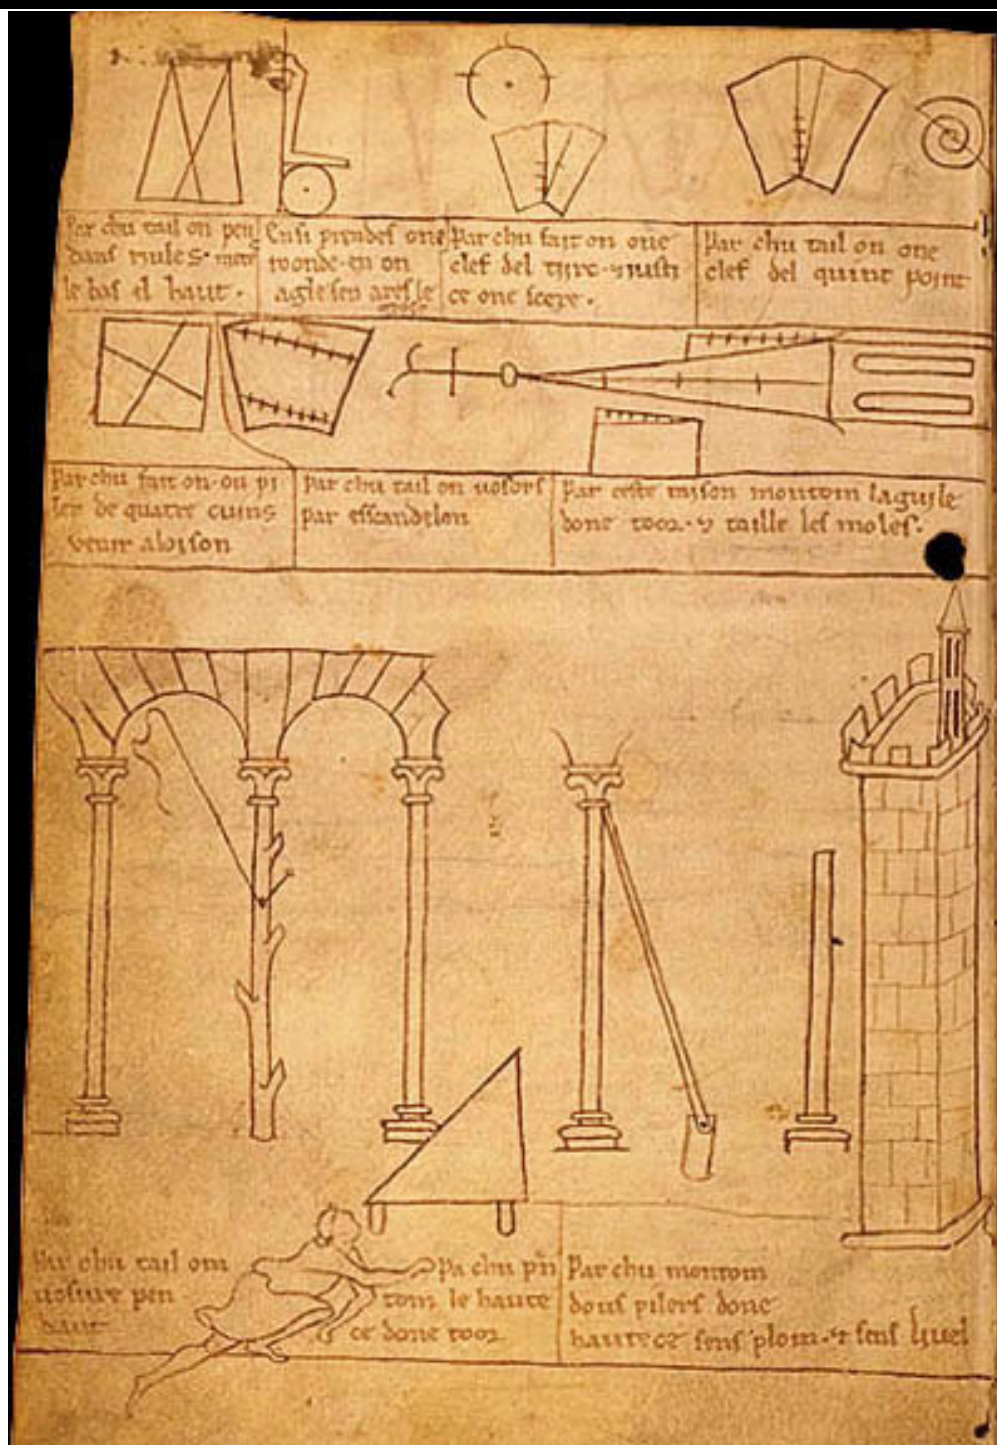 Par chu tail on pen
dans riules . mete
le bas el haut .
Ensi prendes one
roonde . en on
agle sen ares le
Par chu fait on one
clef del tirc . ⁊ justi
ce one scere .
Par chu tail on one
clef del quint point
Par chu fait on . on pi
ler de quatre cuins
venir a loison
Par chu tail on vosors
par esscandelon
Par ceste raison montom laguile
done toor . ⁊ taille les moles .
Par chu tail om
vosure pen
dant
Pa chu pn
tom le haute
ce done toor
Par chu montom
dous pilers done
hautece sens plom . ⁊ sens livel